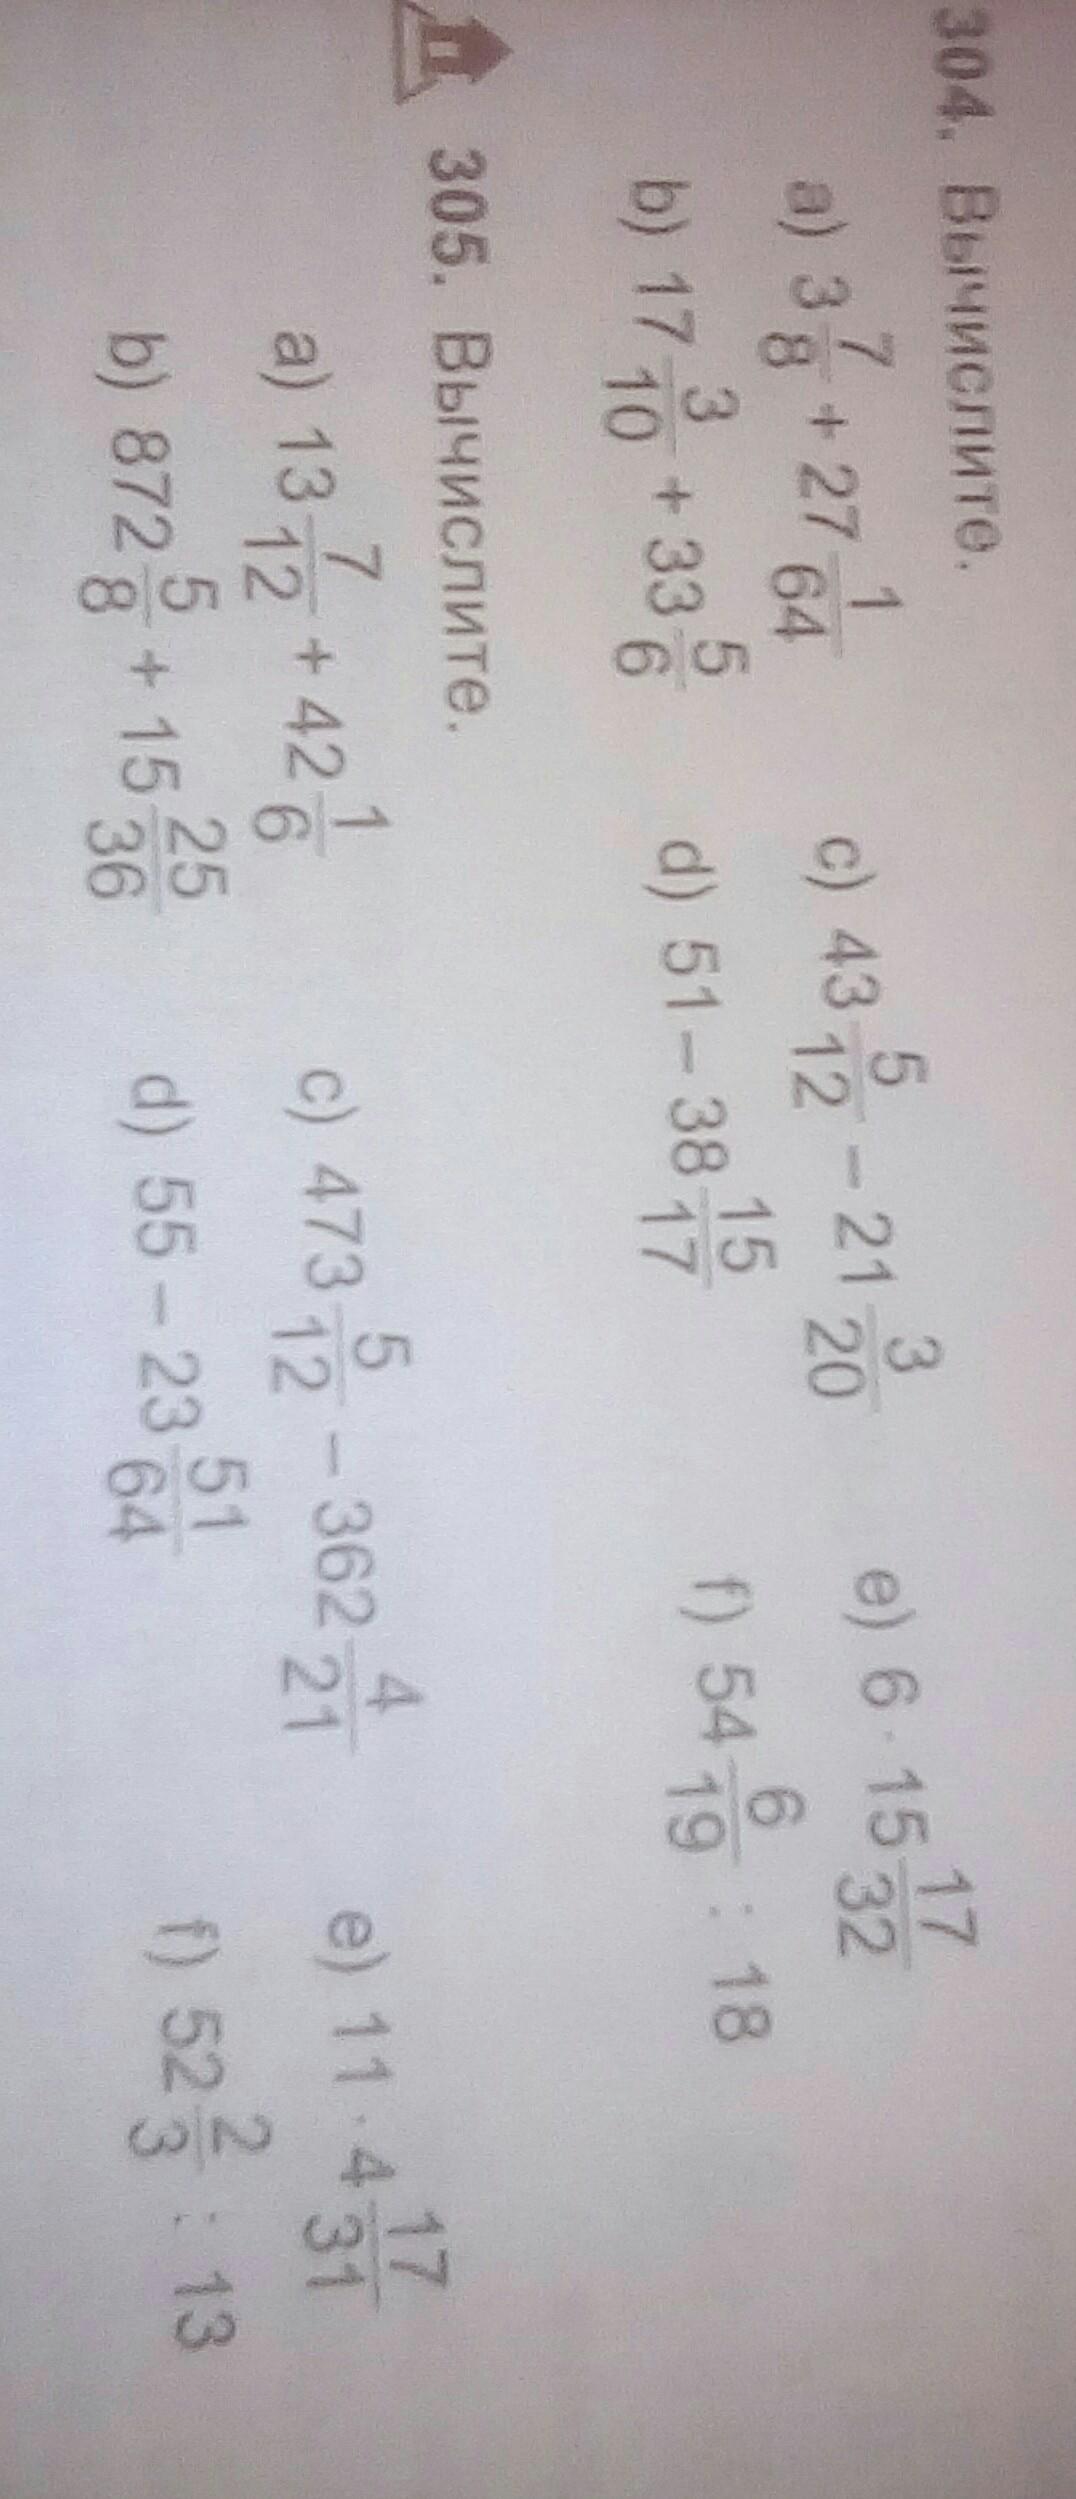 304. Вычислите.
a) 3 7/8 + 27 1/64 c) 43 5/12 – 21 3/20 e) 6 · 15 17/32
b) 17 3/10 + 33 5/6 d) 51 – 38 15/17 f) 54 6/19 : 18
305. Вычислите.
a) 13 7/12 + 42 1/6 c) 473 5/12 – 362 4/21 e) 11 · 4 17/31
b) 872 5/8 + 15 25/36 d) 55 – 23 51/64 f) 52 2/3 : 13